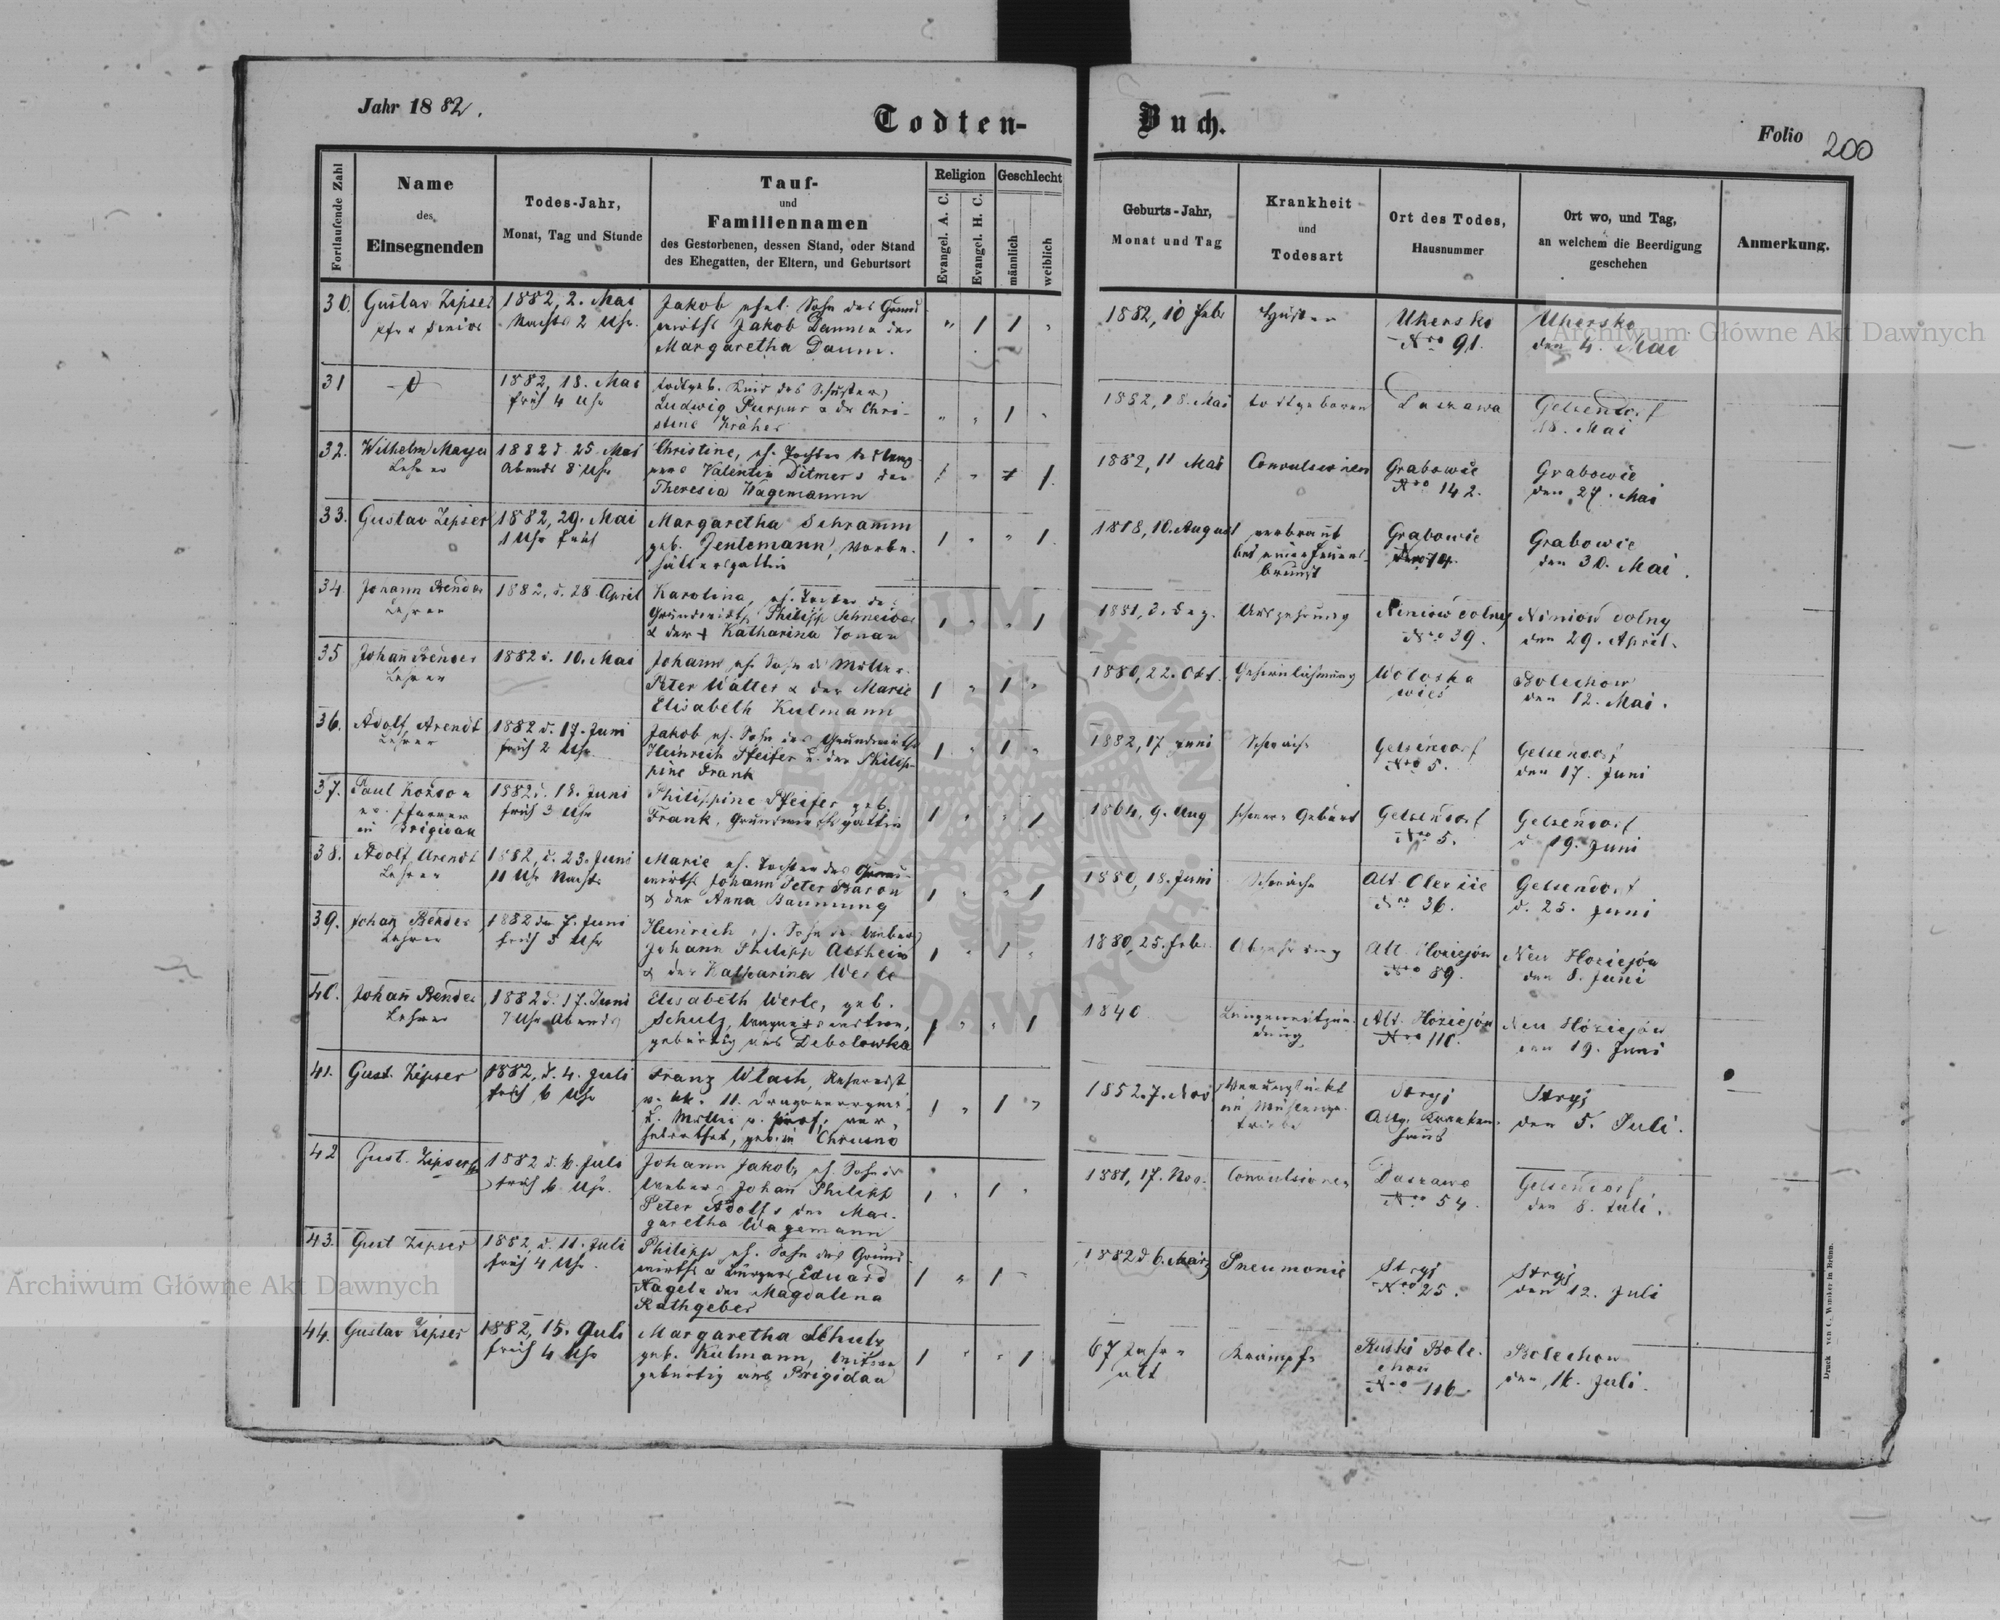 Jahr 1882.
Todten-
Buch.
Folio 200
Fortlaufende Zahl
Name
des
Einsegnenden
Todes-Jahr,
Monat, Tag und Stunde
Tauf-
und
Familiennamen
des Gestorbenen, dessen Stand, oder Stand
des Ehegatten, der Eltern, und Geburtsort
Religion
Evangel. A. C.
Evangel. H. C.
Geschlecht
männlich
weiblich
Geburts-Jahr,
Monat und Tag
Krankheit
und
Todesart
Ort des Todes,
Hausnummer
Ort wo, und Tag,
an welchem die Beerdigung
geschehen
Anmerkung.
30. Gustav Zipser
1882, 2. Mai
Nachts 2 Uhr.
Jakob ehel. Sohn des Grund
wirths Jakob Daum u der
Margaretha Daum.
" / / "
1882, 10 Feb.
Husten
Uhersko
Nro 91.
Uhersko
den 4. Mai
31
1882, 18. Mai
früh 4 Uhr
todtgeb. Kind des Schusters
Ludwig Purpur & der Chri-
stine Kräher
" " / "
1882, 18. Mai
todtgeboren
Daszawa
Gelsendorf
18. Mai
32. Wilhelm Mayer
Lehrer
1882 d. 25. Mai
Abends 8 Uhr
Christine, eh. Tochter
Valentin Ditmer s der
Theresia Wagemann
1882, 11 Mai
Convulsionen
Grabowie
Nro 142.
Grabowie
den 27. Mai
33. Gustav Zipser
1882, 29. Mai
1 Uhr früh
Margaretha Schramm
geb. Jentemann,
1818, 10. August
verbrannt
bei einer Feuers
brunst
Grabowie
Grabowie
den 30. Mai.
34. Johann Bender
Lehrer
1882, d. 28. April
Karolina, eh. Tochter des
Grundwirths Philipp Schneider
& der + Katharina Jonau
1881, 3. Dez.
Auszehrung
Niniow dolny
Nro 39.
Niniow dolny
den 29. April.
35 Johañ Bender
Lehrer
1882 d. 10. Mai
Johann eh. Sohn d. Müller
Peter Walter & der Marie
Elisabeth Kulmann
1880, 22. Okt.
Gehirnlähmung
Woloska
wieś
Bolechow
den 12. Mai.
36. Adolf Arendt
Lehrer
1882 d. 17. Juni
früh 2 Uhr
Jakob eh. Sohn des Grundwirths
Heinrich Pfeifer u. der Philip-
pine Frank
1882, 17 Juni
Schwäche
Gelsendorf
Nro 5.
Gelsendorf
den 17. Juni
37. Paul Kozdon
ev. Pfarrer
in Brigidau
1882 d. 18. Juni
früh 3 Uhr
Philippine Pfeifer geb.
Frank, Grundwirthsgattin
9. Aug
schwere Geburt
Gelsendorf
Nro 5.
Gelsendorf
d. 19. Juni
38. Adolf Arendt
Lehrer
1882, d. 23. Juni
11 Uhr Nachts
Marie eh. Tochter des Grund-
wirths Johann Peter Baron
& der Anna Baumung
1880, 18. Juni
Schwäche
Alt
Nro 36.
Gelsendorf
d. 25. Juni
39. Johañ Bender
Lehrer
1882 den 7. Juni
früh 5 Uhr
Heinrich eh. Sohn des Webers
Johann Philipp Altheim
& der Katharina Werle
1880, 25. Feb.
Abzehrung
Alt Hoziejów
Nro 89.
Neu Hoziejów
den 8. Juni
40. Johañ Bender
Lehrer
1882 d. 17. Juni
7 Uhr Abends
Elisabeth Werle, geb.
Schutz,
gebürtig aus Debolowka
1840
Lungenentzün-
dung
Alt. Hoziejów
Nro 110.
Neu Hoziejów
den 19. Juni
41. Gust. Zipser
1882, d. 4. Juli
früh 6 Uhr
Franz Wlach, Reservist
v. kk. 11. Dragonerregmt.
1852. 7. Nov
Verunglückt
im Mühlenge-
triebe
Stryj
Allg. Kranken-
haus
Stryj
den 5. Juli.
42 Gust. Zipser
1882 d. 6. Juli
früh 6. Uhr.
Johann Jakob, eh. Sohn d.
Webers Johañ Philipp
Peter Adolf s der Mar-
garetha Wagemann
1881, 17. Nov.
Convulsionen
Daszawa
Nro 54.
Gelsendorf
den 8. Juli.
43. Gust Zipser
1882, d. 11. Juli
früh 4 Uhr.
Philipp eh. Sohn des Grund-
wirths & Bürgers Eduard
Nagel u der Magdalena
Rathgeber
1882 d 6. März
Pneumonie
Stryj
Nro 25.
Stryj
den 12. Juli
44. Gustav Zipser
1882, 15. Juli
früh 4 Uhr
Margaretha Schutz
geb. Kulmann, Witwe
gebürtig aus Brigidau
67 Jahre
alt
Krämpfe
Ruski Bole-
chow
Nro 116
Bolechow
den 16. Juli.
Druck von C. Winiker in Brünn.
Archiwum Główne Akt Dawnych
Archiwum Główne Akt Dawnych